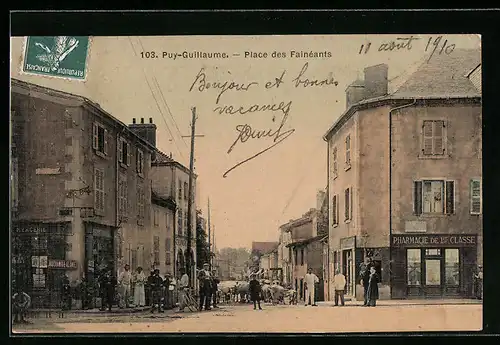 103. Puy-Guillaume. — Place des Fainéants
10 août 1910
Bonjour et bonnes
vacances
PHARMACIE DE 1RE CLASSE
MERCERIE